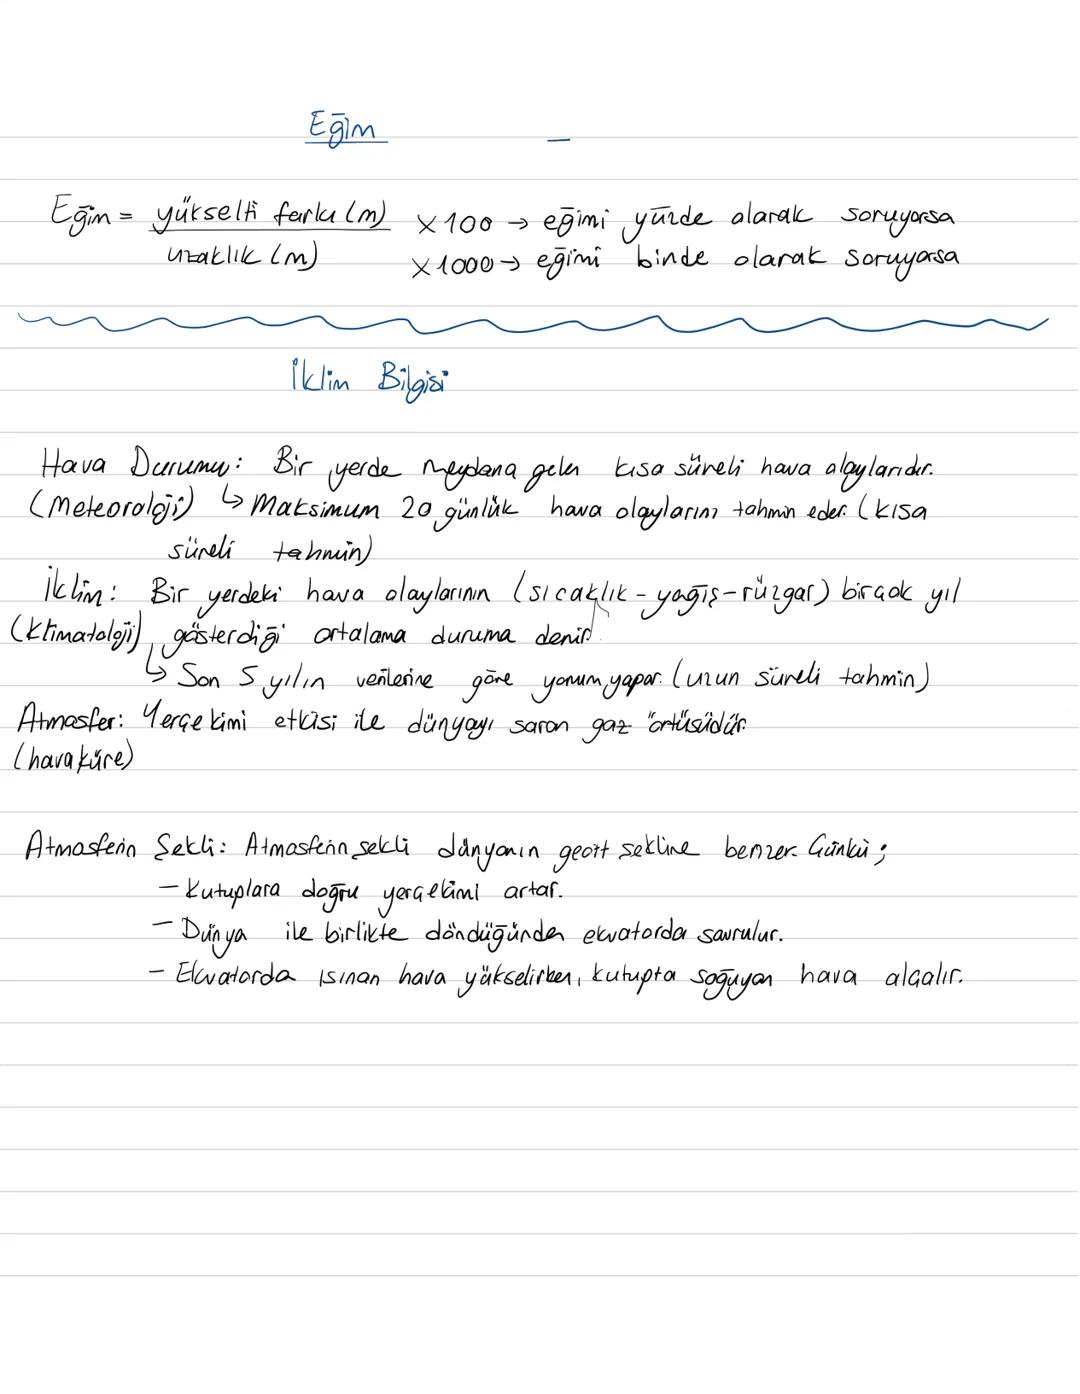 Eğim
Eğim = yükselti farkı (m) / uzaklık (m) x100 → eğimi yüzde olarak soruyorsa
x1000 → eğimi binde olarak soruyorsa
İklim Bilgisi
Hava Durumu: Bir yerde meydana gelen kısa süreli hava olaylarıdır.
(Meteoroloji) ↳ Maksimum 20 günlük hava olaylarını tahmin eder. (kısa
süreli tahmin)
İklim: Bir yerdeki hava olaylarının (sıcaklık - yağış - rüzgar) birçok yıl
(Klimatoloji) gösterdiği ortalama duruma denir.
↳ Son 5 yılın verilerine göre yorum yapar. (uzun süreli tahmin)
Atmosfer: Yerçekimi etkisi ile dünyayı saran gaz örtüsüdür.
(havaküre)
Atmosferin Şekli: Atmosferin şekli dünyanın geoit şekline benzer. Çünkü ;
- Kutuplara doğru yerçekimi artar.
- Dünya ile birlikte döndüğünden ekvatorda savrulur.
- Ekvatorda ısınan hava yükselirken, kutupta soğuyan hava alçalır.